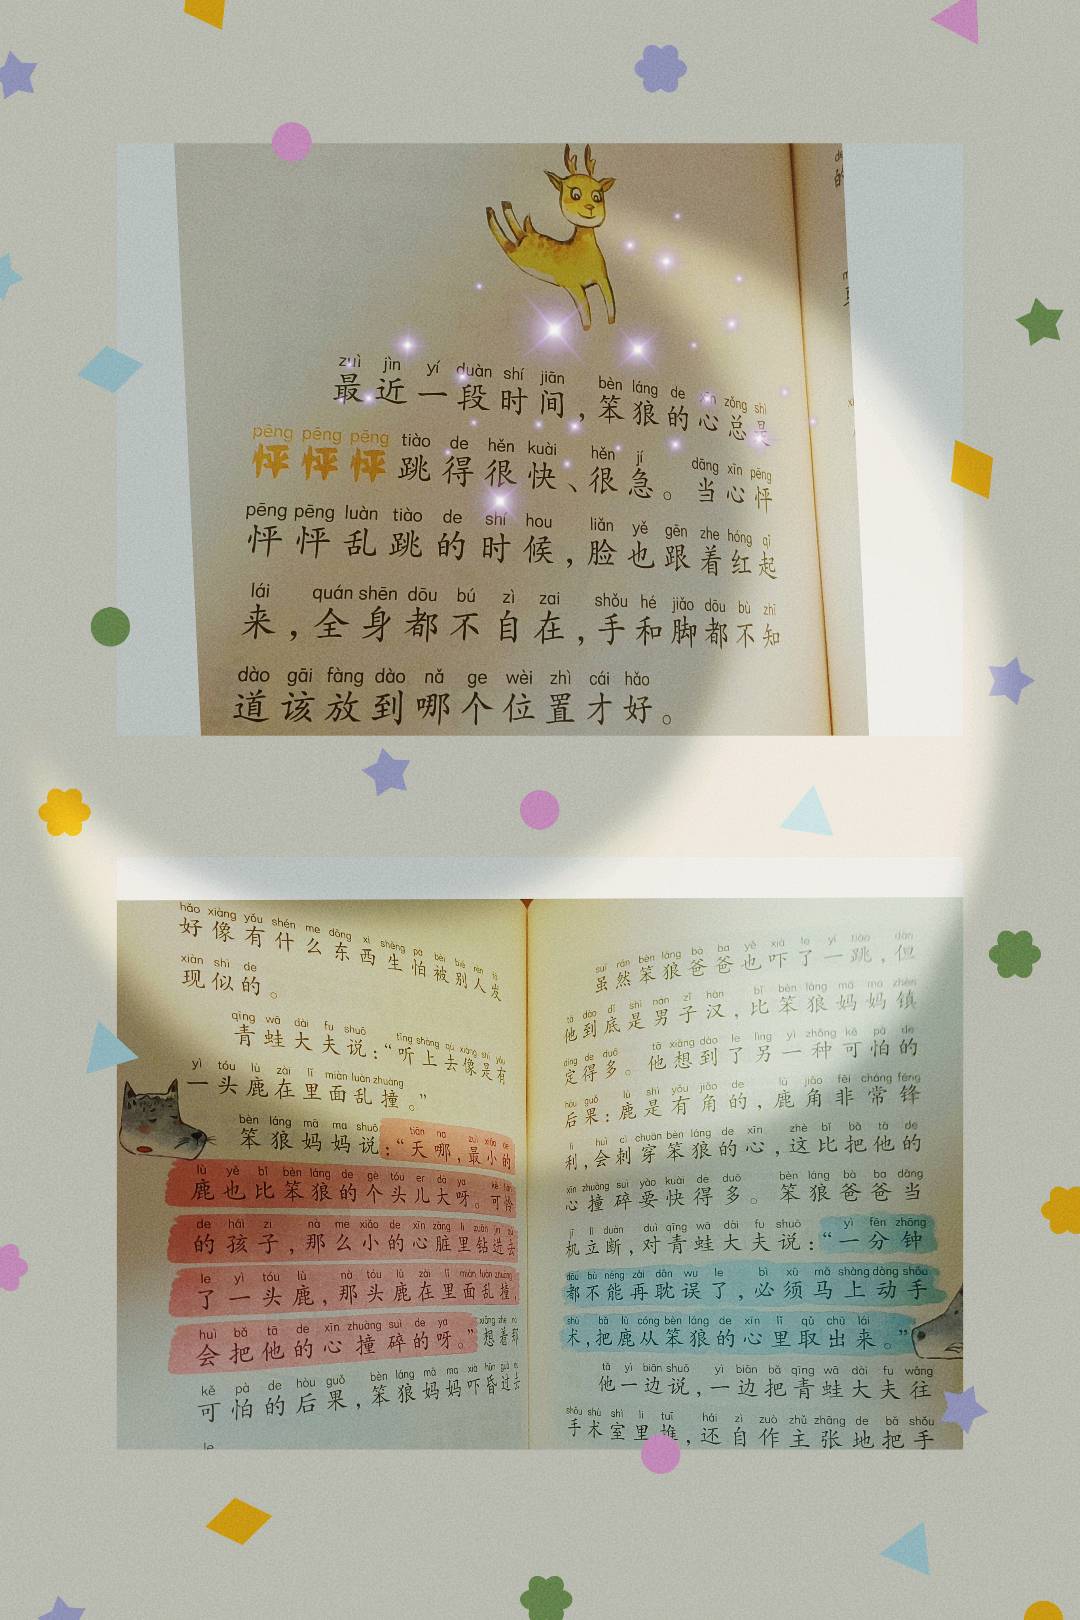 zuì jìn yí duàn shí jiān bèn láng de xīn zǒng shì
最近一段时间，笨狼的心总是
pēng pēng pēng tiào de hěn kuài hěn jí dāng xīn pēng
怦怦怦跳得很快、很急。当心怦
pēng pēng luàn tiào de shí hou liǎn yě gēn zhe hóng qǐ
怦怦乱跳的时候，脸也跟着红起
lái quán shēn dōu bú zì zai shǒu hé jiǎo dōu bù zhī
来，全身都不自在，手和脚都不知
dào gāi fàng dào nǎ ge wèi zhì cái hǎo
道该放到哪个位置才好。
hǎo xiàng yǒu shén me dōng xi shēng pà bèi bié rén fā
好像有什么东西生怕被别人发
xiàn shì de
现似的。
qīng wā dài fu shuō tīng shàng qù xiàng shì yǒu
青蛙大夫说：“听上去像是有
yì tóu lù zài lǐ miàn luàn zhuàng
一头鹿在里面乱撞。”
bèn láng mā ma shuō tiān na zuì xiǎo de
笨狼妈妈说：“天哪，最小的
lù yě bǐ bèn láng de gè tóu er dà ya kě lián
鹿也比笨狼的个头儿大呀。可怜
de hái zi nà me xiǎo de xīn zàng li zuān jìn qù
的孩子，那么小的心脏里钻进去
le yì tóu lù nà tóu lù zài lǐ miàn luàn zhuàng
了一头鹿，那头鹿在里面乱撞，
huì bǎ tā de xīn zhuàng suì de ya xiǎng zhe nà
会把他的心撞碎的呀。”想着那
kě pà de hòu guǒ bèn láng mā ma xià hūn guò qù
可怕的后果，笨狼妈妈吓昏过去
le
suī rán bèn láng bà ba yě xià le yí tiào dàn
虽然笨狼爸爸也吓了一跳，但
tā dào dǐ shì nán zǐ hàn bǐ bèn láng mā ma zhèn
他到底是男子汉，比笨狼妈妈镇
dìng de duō tā xiǎng dào le lìng yì zhǒng kě pà de
定得多。他想到了另一种可怕的
hòu guǒ lù shì yǒu jiǎo de lù jiǎo fēi cháng fēng
后果：鹿是有角的，鹿角非常锋
lì huì cì chuān bèn láng de xīn zhè bǐ bǎ tā de
利，会刺穿笨狼的心，这比把他的
xīn zhuàng suì yào kuài de duō bèn láng bà ba dāng
心撞碎要快得多。笨狼爸爸当
jī lì duàn duì qīng wā dài fu shuō yì fēn zhōng
机立断，对青蛙大夫说：“一分钟
dōu bù néng zài dān wu le bì xū mǎ shàng dòng shǒu
都不能再耽误了，必须马上动手
shù bǎ lù cóng bèn láng de xīn lǐ qǔ chū lái
术，把鹿从笨狼的心里取出来。”
tā yì biān shuō yì biān bǎ qīng wā dài fu wǎng
他一边说，一边把青蛙大夫往
shǒu shù shì li tuī hái zì zuò zhǔ zhāng de bǎ shǒu
手术室里推，还自作主张地把手